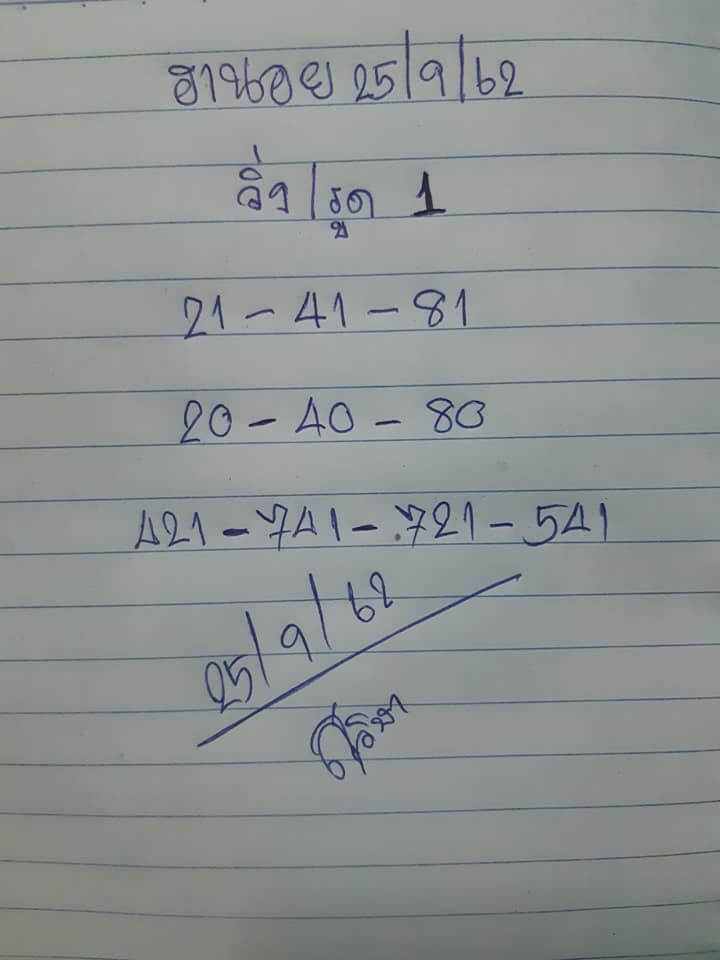 ฮานอย 25/9/62
วิ่ง/รูด 1
21-41-81
20-40-80
421-741-721-541
25/9/62